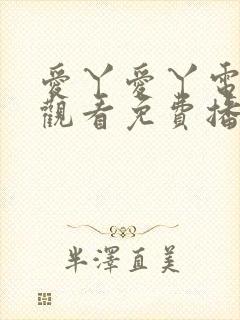 愛丫愛丫電
觀看免費播
半澤直美